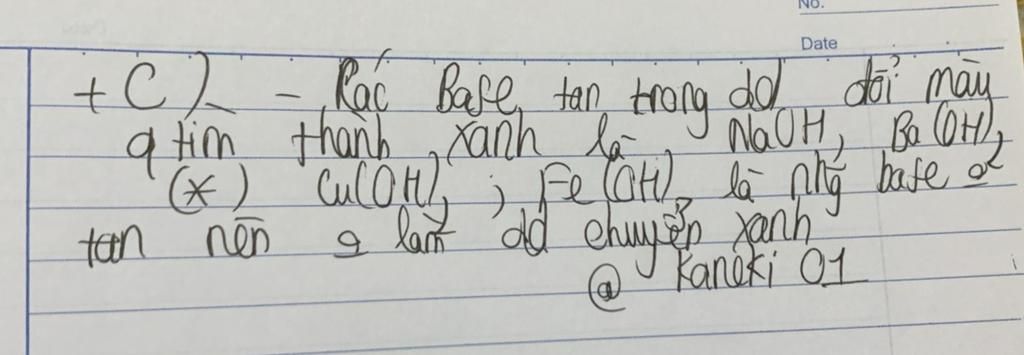 No.
Date
+ C) - Các Base tan trong dd đổi màu
q tím thành xanh là NaOH, Ba(OH)2
(*) Cu(OH)2 ; Fe(OH)2 là nhg base
tan nên làm dd chuyển xanh
@ Kaneki 01